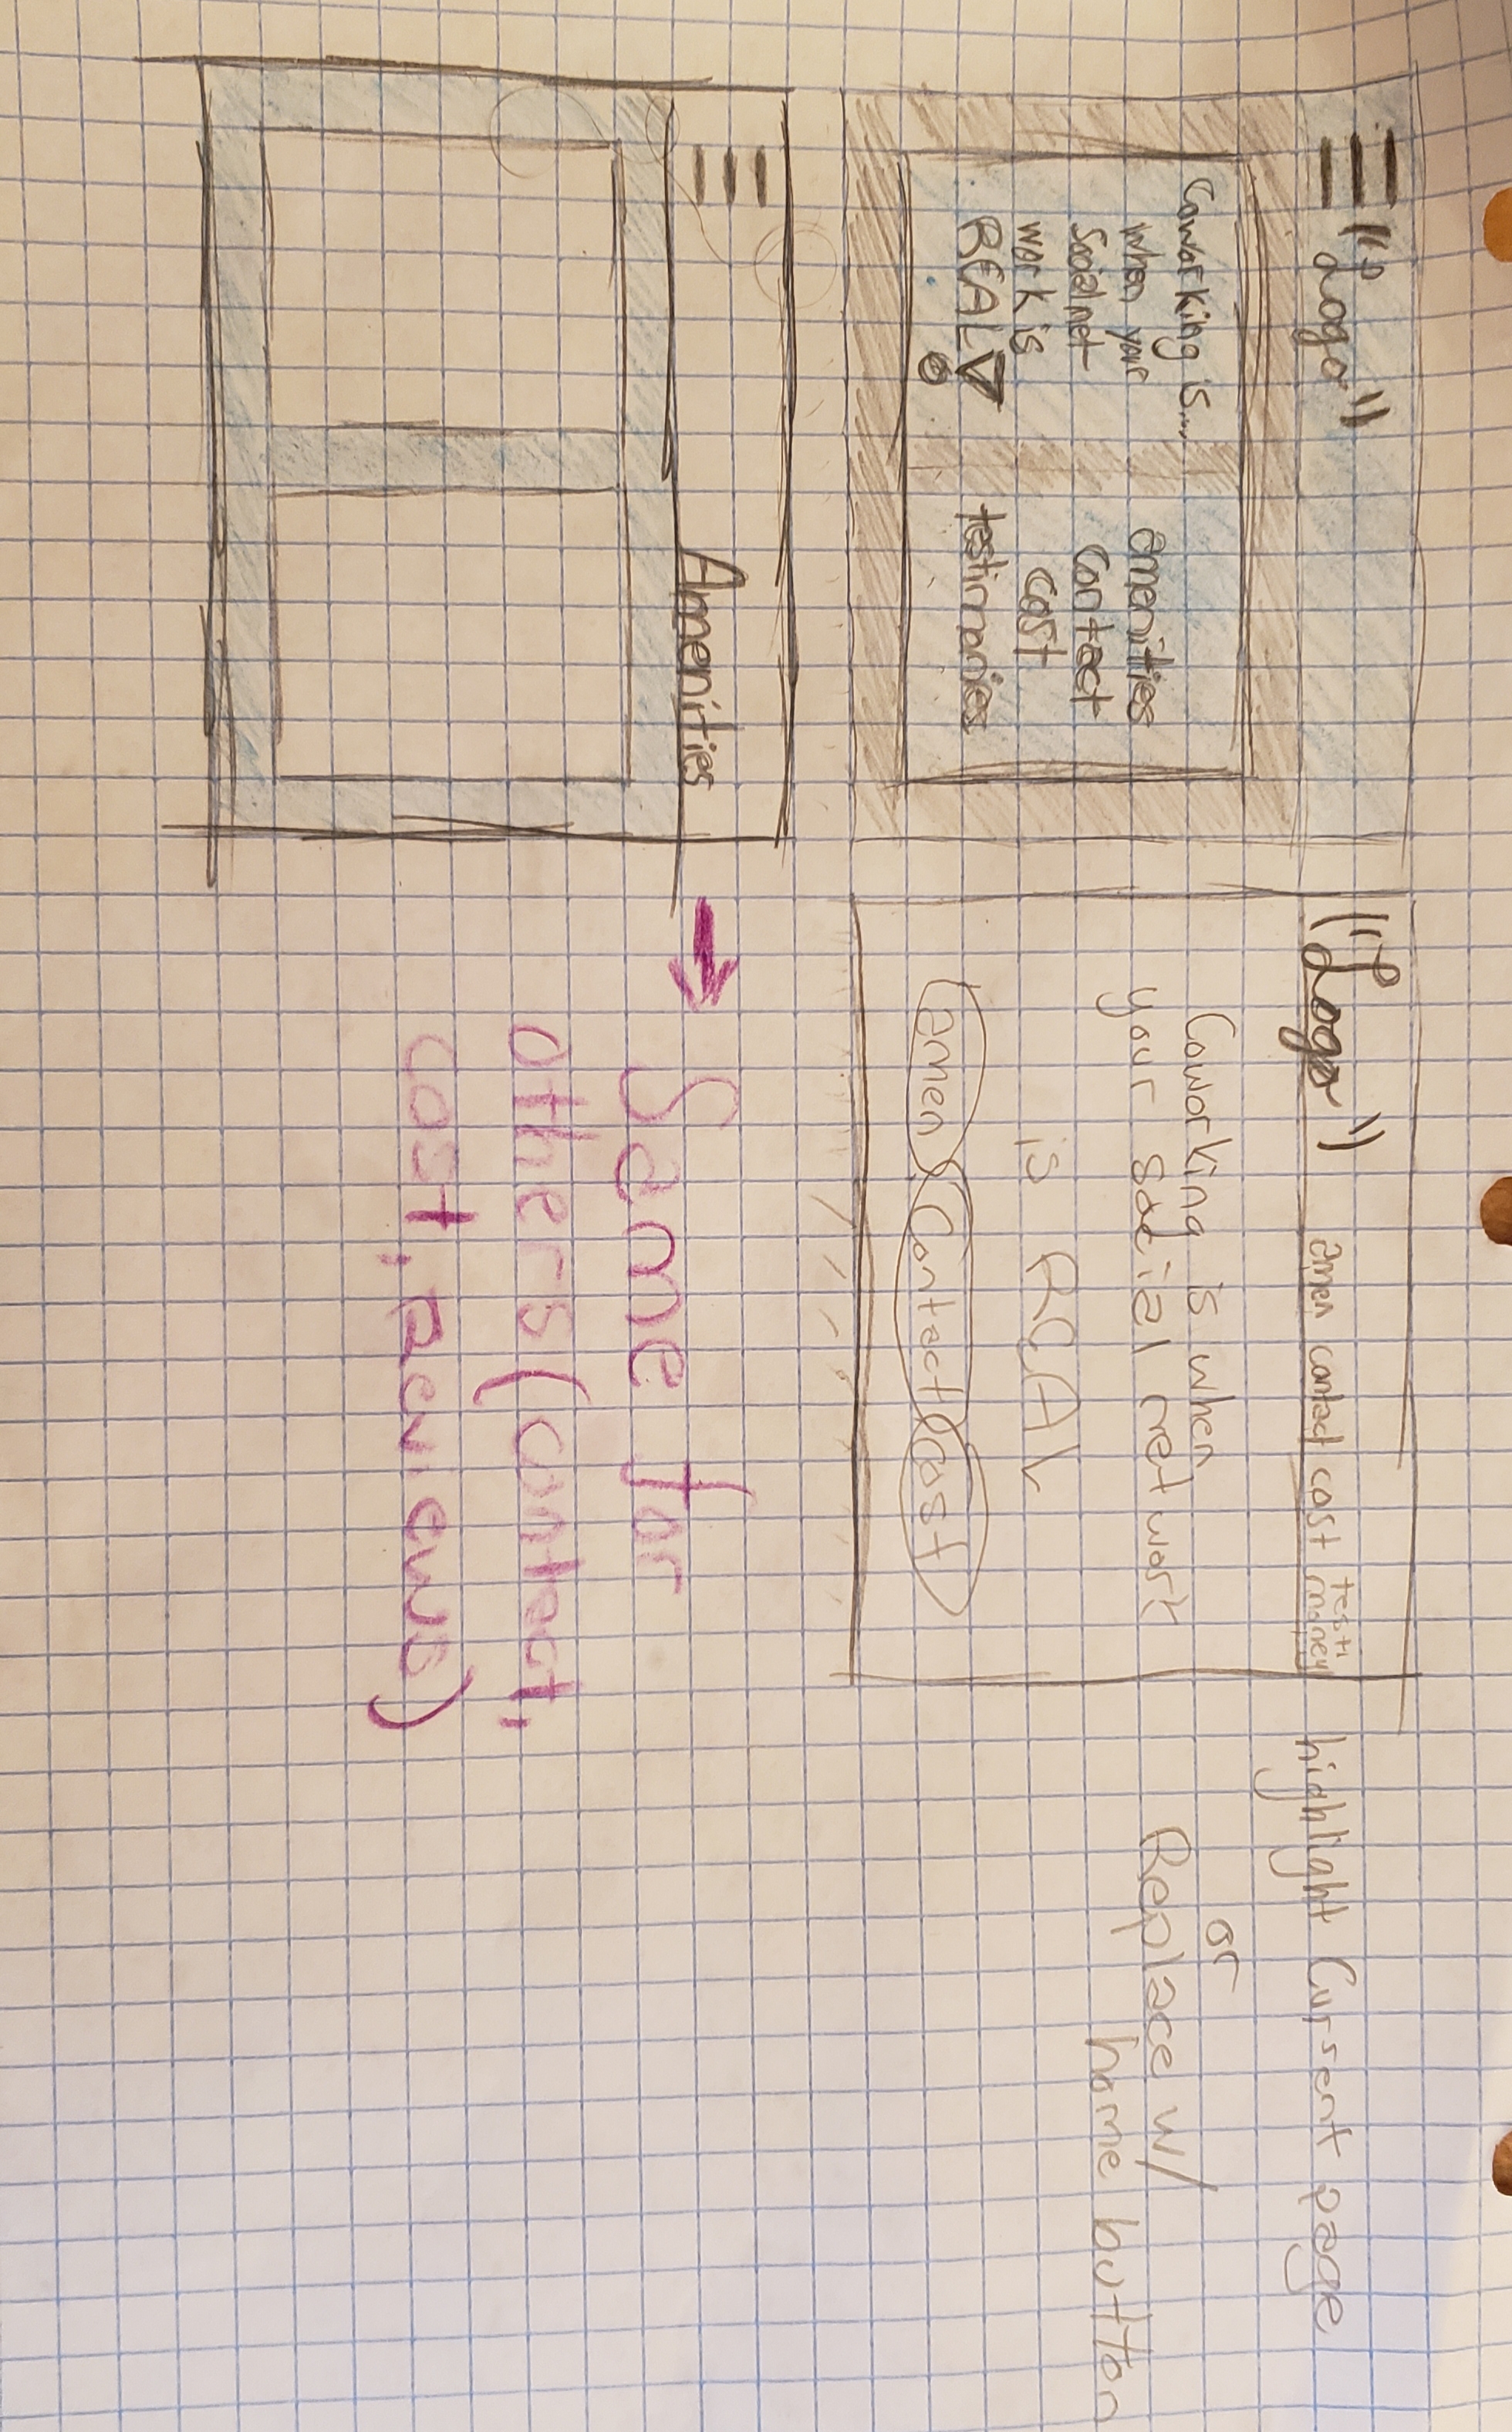 "Logo"
Coworking is...
when your
Social net
work is
REAL!
emenities
Contact
cost
testimonies
"Logo"
amen contact cost testi
money
Coworking is when
your social network
is REAL
amen Contact Cost
highlight Current page
or
Replace w/
home button
Amenities
Same for
others (contact,
cost, Reviews)